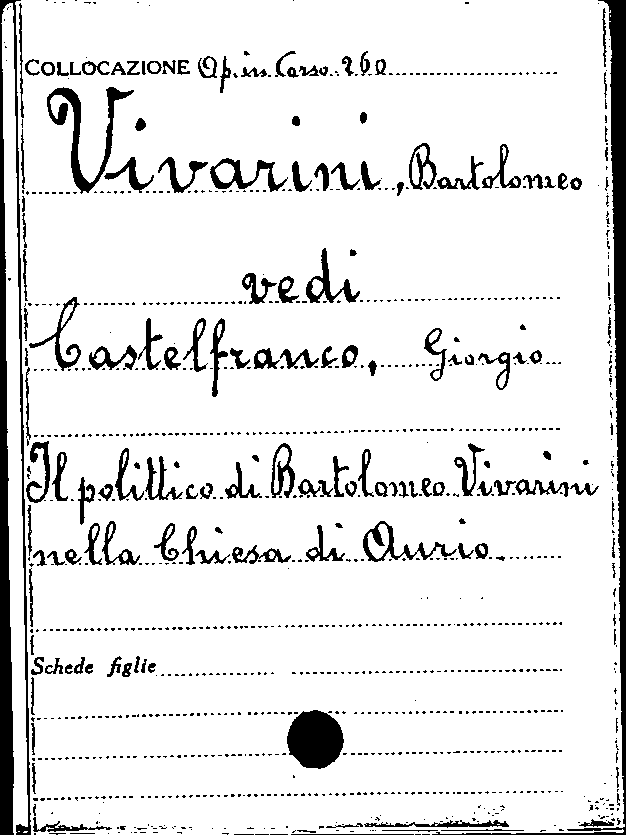 COLLOCAZIONE Op. in Corso. 260
Vivarini, Bartolomeo
vedi
Castelfranco, Giorgio
Il polittico di Bartolomeo Vivarini
nella Chiesa di Aurio.
Schede figlie